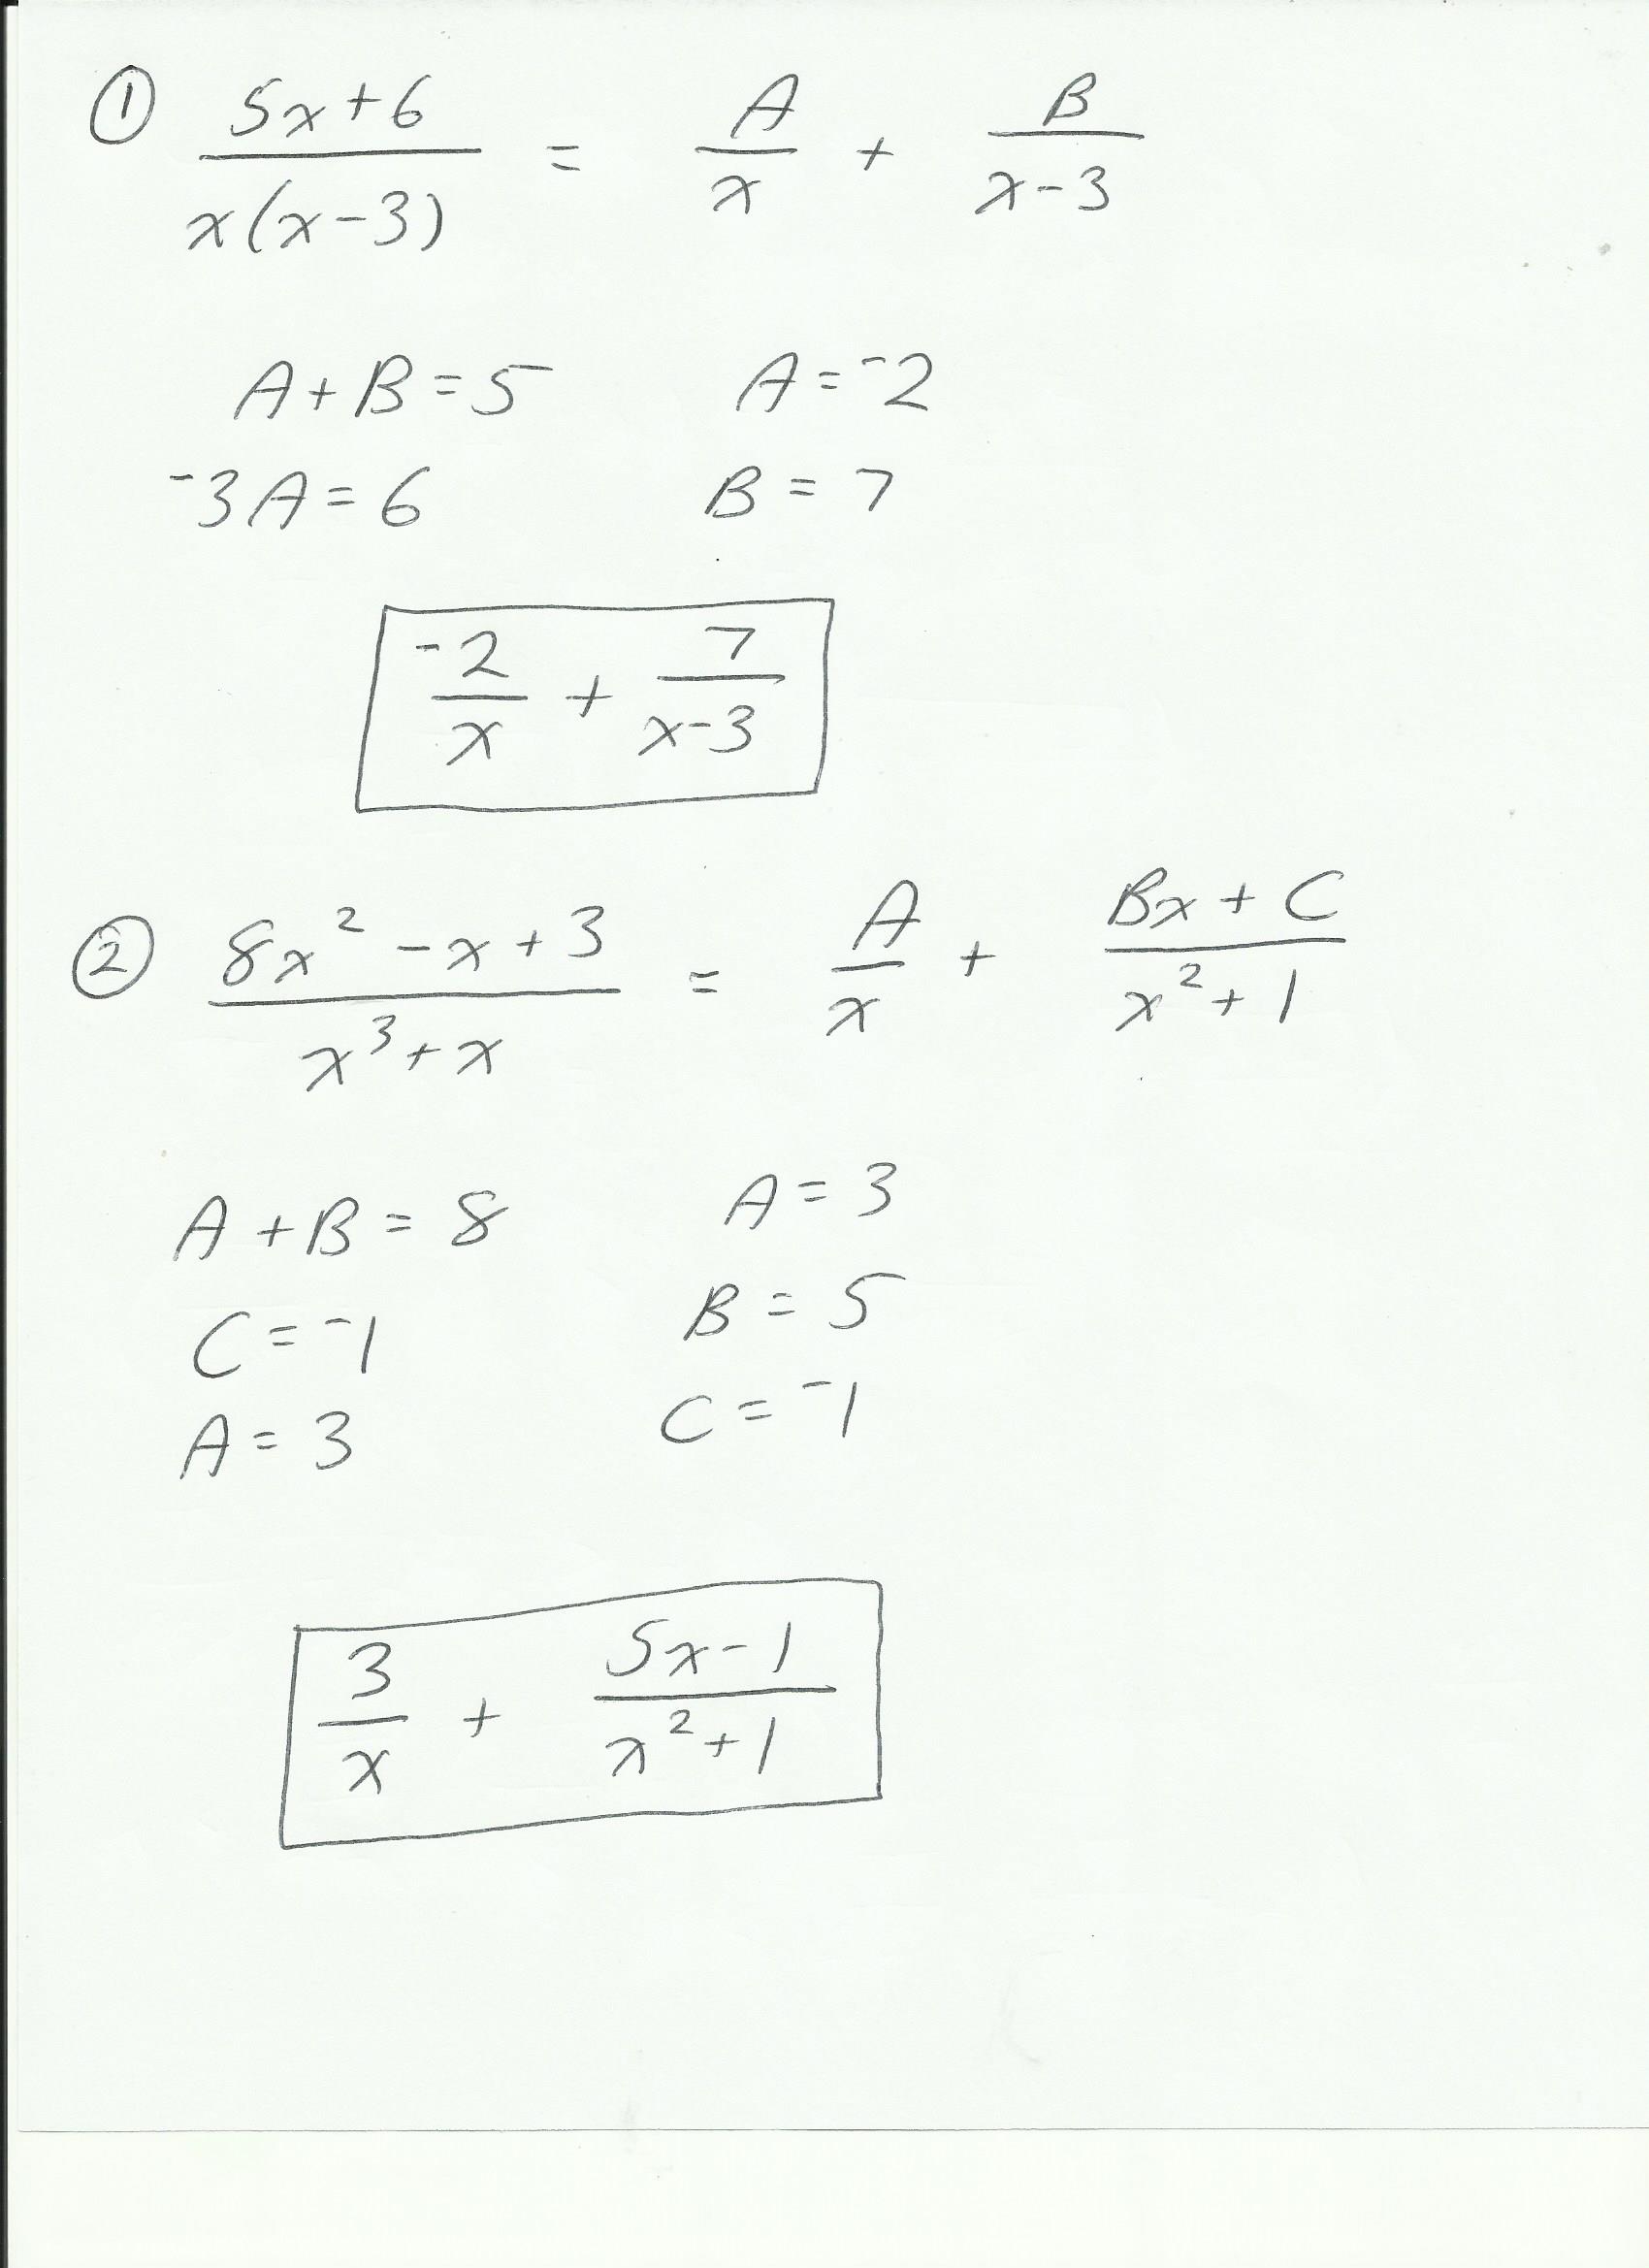 ① (5x+6)/(x(x-3)) = A/x + B/(x-3)
A+B=5    A=⁻2
⁻3A=6    B=7
⁻2/x + 7/(x-3)
② (8x²-x+3)/(x³+x) = A/x + (Bx+C)/(x²+1)
A+B=8    A=3
C=⁻1    B=5
A=3    C=⁻1
3/x + (5x-1)/(x²+1)